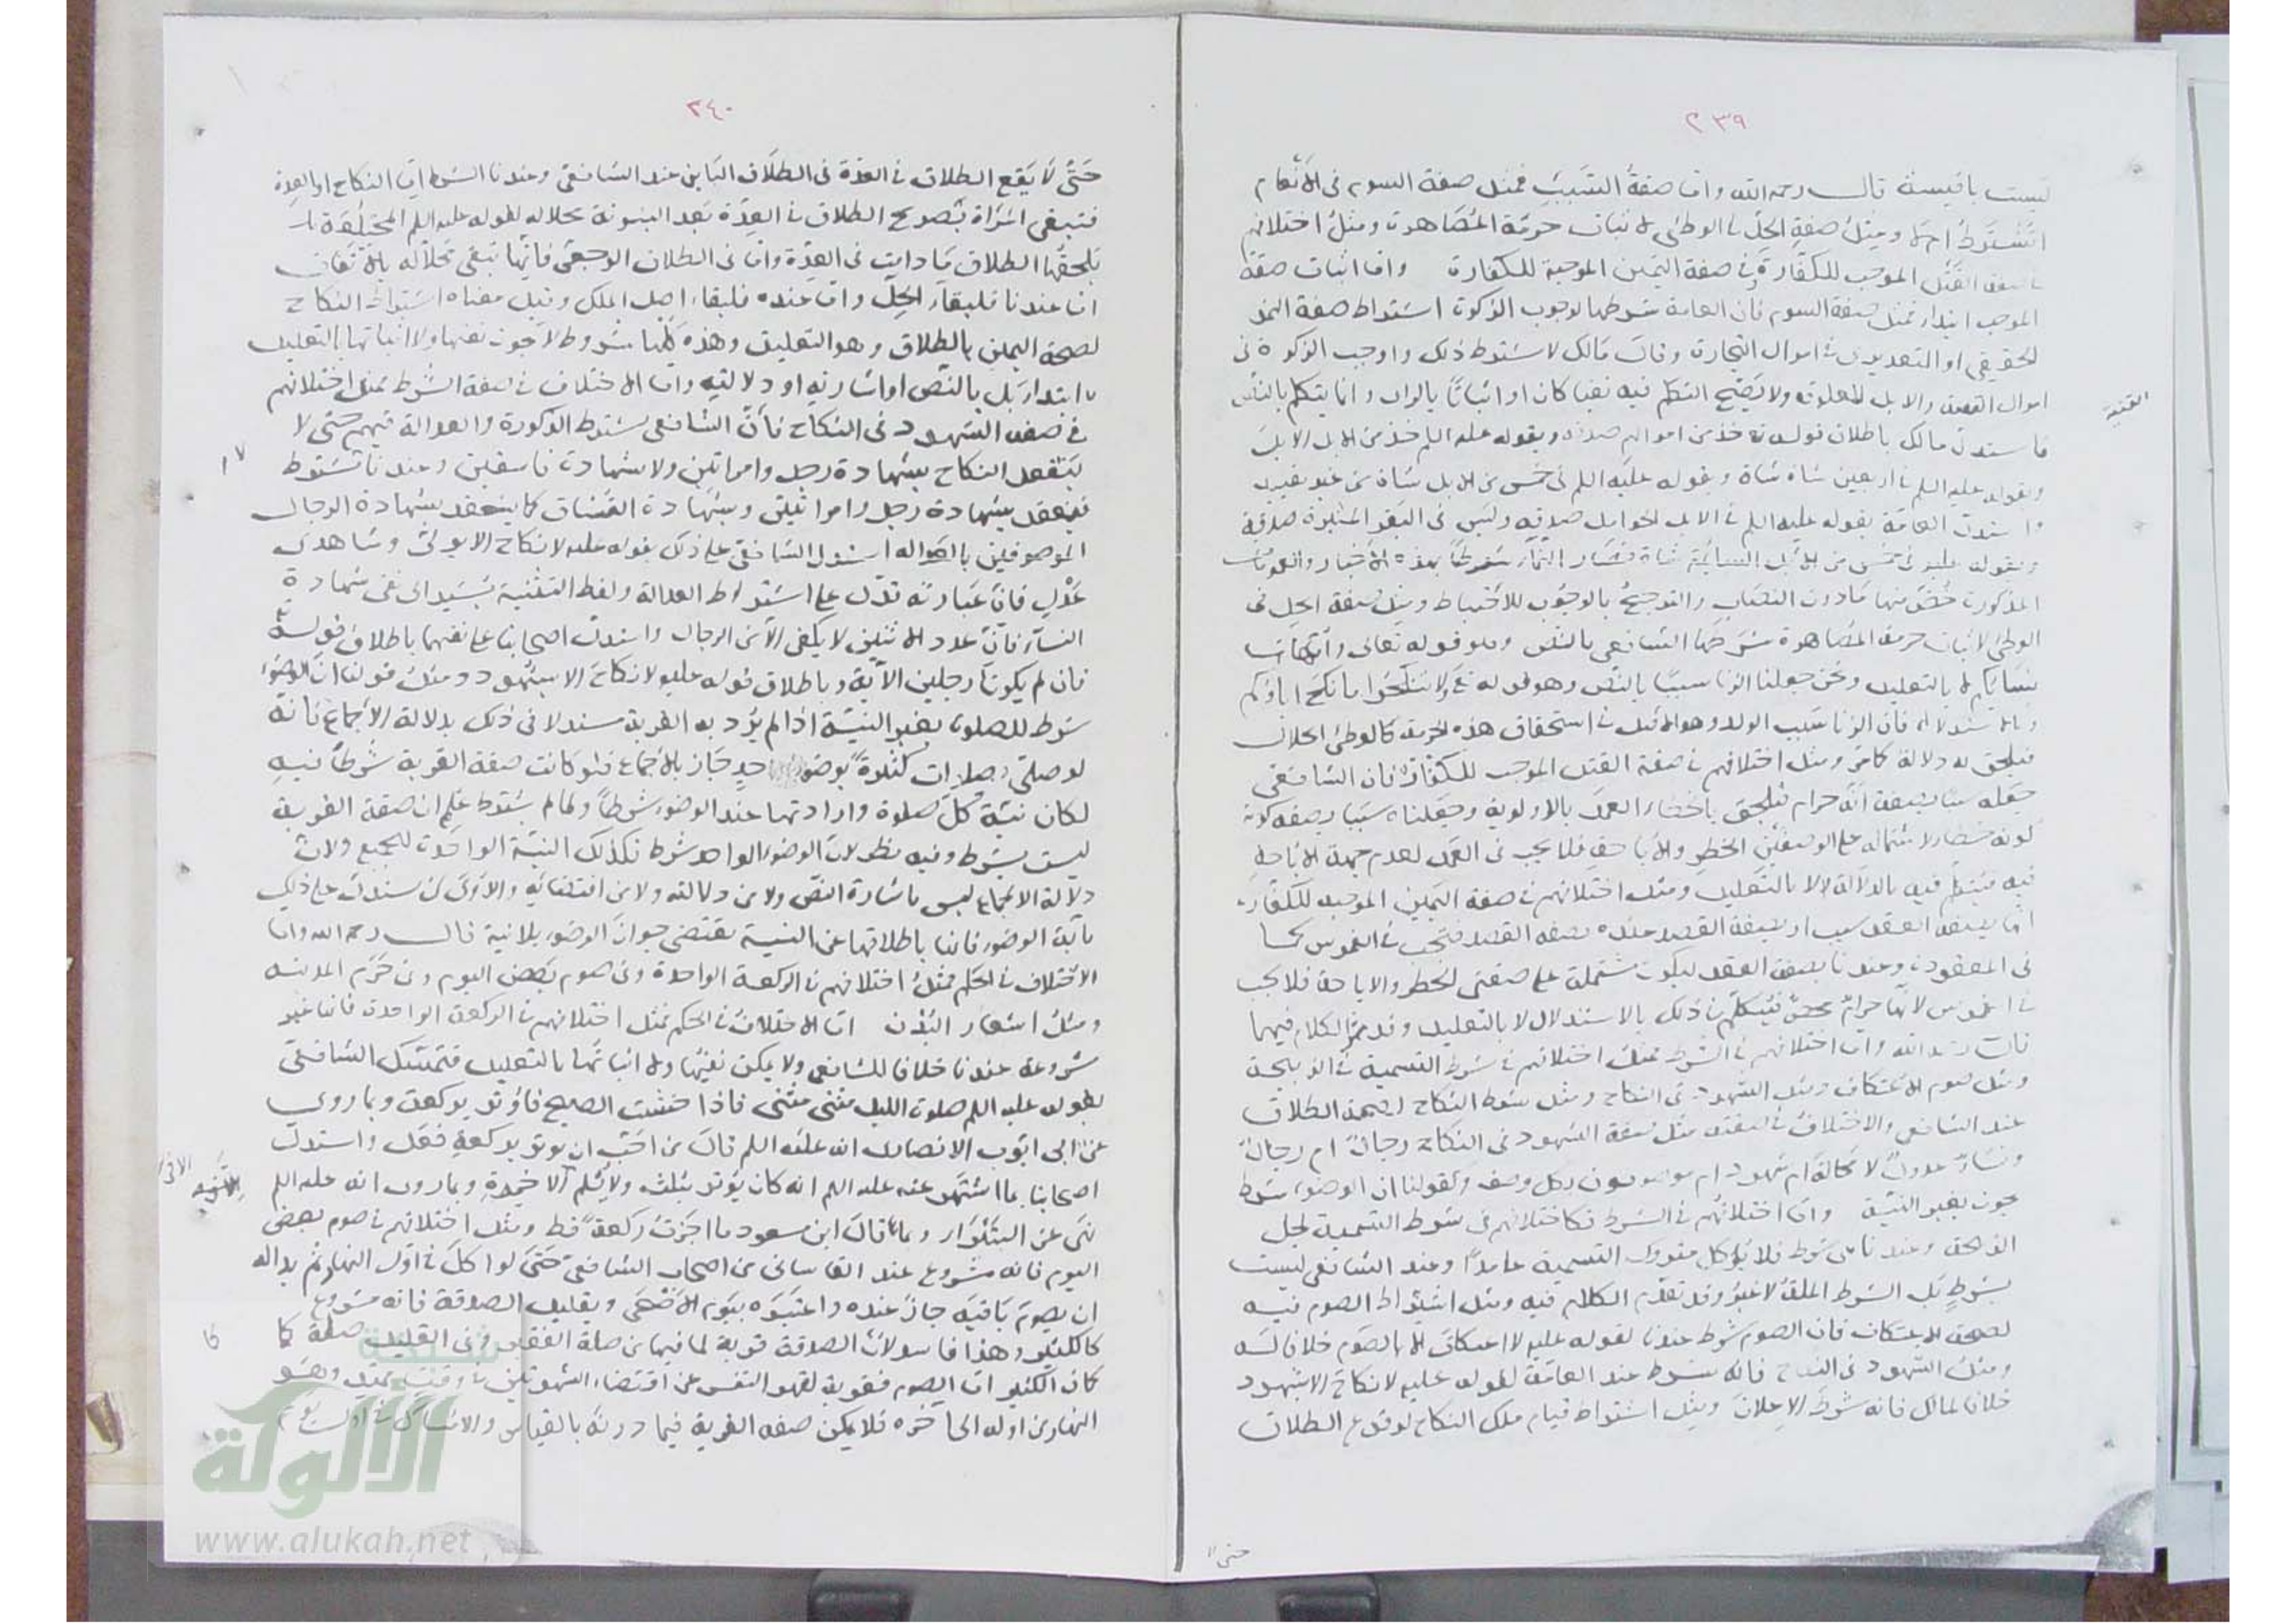 ٢٣٩
ليست باقيسة قال رحمه الله واما صفة السبب فمثل صفة السوم فى الانعام
ايشترط ام لا ومثل صفة الحل فى الوطئ لاثبات حرمة المصاهرة ومثل اختلافهم
القتل الموجب للكفارة وفى صفة اليمين الموجبة للكفارة واما اثبات صفة
الموجب ابتداء فمثل صفة السوم فان العامة شرطها لوجوب الزكوة اشتراط صفة النمو
الحقيقى او التقديرى فى اموال التجارة وقال مالك لا يشترط ذلك واوجب الزكوة فى
والابل المعلوفة ولا يصح التكلم فيه نفيا كان او اثباتا بالراى وانما يتكلم بالنص
فاستدل مالك باطلاق قوله تع خذ من اموالهم صدقة وبقوله عليه السلم خذ من الابل الابل
وبقوله عليه السلم فى اربعين شاة شاة وبقوله عليه السلم فى خمس من الابل شاة من غير تقييد
واستدل العامة بقوله عليه السلم فى الابل الحوامل صدقة وليس فى البقر المثيرة صدقة
وبقوله عليه فى خمس من الابل السائمة شاة فصار النماء شرطا بهذه الاخبار والعمومات
المذكورة خص منها ما دون النصاب والترجيح بالوجوب للاحتياط ومثل صفة الحل فى
الوطئ لاثبات حرمة المصاهرة شرطها الشافعى بالنص وهو قوله تعالى وامهات
نسائكم لا بالتعليل ونحن جعلنا الزنا سببا بالنص وهو قوله تع ولا تنكحوا ما نكح اباؤكم
وبالاستدلال فان الزنا سبب الولد وهو الاصل فى استحقاق هذه الحرمة كالوطئ الحلال
فيلحق به دلالة كما مر ومثل اختلافهم فى صفة القتل الموجب للكفارة فان الشافعى
جعله سببا بصفة انه حرام فيلحق بالخطاء العمد بالاولوية وجعلناه سببا بصفة كونه
كونه خطاء لاشتماله على الوصفين الحظر والاباحة فلا يجب فى العمد لعدم جهة الاباحة
فيه فيتكلم فيه بالدلالة لا بالتعليل ومثل اختلافهم فى صفة اليمين الموجبة للكفارة
انها بصفة العقد سبب او بصفة القصد عنده بصفة القصد فتجب فى الغموس كما
فى المعقودة وعندنا بصفة العقد ليكون مشتملة على صفتى الحظر والاباحة فلا يجب
فى الغموس لانها حرام محض فيتكلم فى ذلك بالاستدلال لا بالتعليل وقد مر الكلام فيهما
قال رحمه الله واما اختلافهم فى الشرط فمثل اختلافهم فى شرط التسمية فى الذبيحة
ومثل صوم الاعتكاف ومثل الشهود فى النكاح ومثل شرط النكاح لصحة الطلاق
عند الشافعى والاختلاف فى صفته مثل صفة الشهود فى النكاح رجال ام رجال
ونساء عدول لا محالة ام شهود ام موصوفون بكل وصف وكقولنا ان الوضوء شرط
بغير النية واما اختلافهم فى الشرط فكاختلافهم فى شرط التسمية لحل
الذبيحة وعندنا هى شرط فلا يؤكل متروك التسمية عامدا وعند الشافعى ليست
بشرط بل الشرط الملة لا غير وقد تقدم الكلام فيه ومثل اشتراط الصوم فيه
لصحة الاعتكاف فان الصوم شرط عندنا لقوله عليه لا اعتكاف الا بالصوم خلافا له
ومثل الشهود فى النكاح فانه شرط عند العامة لقوله عليه لا نكاح الا بشهود
خلافا لمالك فانه شرط الاعلان ومثل اشتراط قيام ملك النكاح لوقوع الطلاق
حتى
٢٤٠
حتى لا يقع الطلاق فى العدة فى الطلاق البائن عند الشافعى وعندنا الشرط اما النكاح او العدة
فتبقى امرأة بصريح الطلاق فى العدة بعد البينونة محلا له لقوله عليه السلم المختلعة
يلحقها الطلاق ما دامت فى العدة واما فى الطلاق الرجعى فانها تبقى محلا له بالاتفاق
اما عندنا فلبقاء الحل واما عنده فلبقاء اصل الملك وقيل معناه اشتراط النكاح
لصحة اليمين بالطلاق وهو التعليق وهذه كلها شروط لا يجوز نفيها ولا اثباتها بالتعليل
ابتداء بل بالنص او اشارته او دلالته واما الاختلاف فى صفة الشرط فمثل اختلافهم
فى صفة الشهود فى النكاح فان الشافعى يشترط الذكورة والعدالة فيهم حتى لا
ينعقد النكاح بشهادة رجل وامراتين ولا شهادة فاسقين وعندنا لا تشترط
فينعقد بشهادة رجل وامراتين وبشهادة الفساق كما ينعقد بشهادة الرجال
الموصوفين بالعدالة استدل الشافعى على ذلك بقوله عليه لا نكاح الا بولى وشاهدى
عدل فان عبارته تدل على اشتراط العدالة ولفظ التثنية يشير الى نفى شهادة
النساء فان عدد الاثنين لا يكفى الا من الرجال واستدل اصحابنا على نفيهما باطلاق قوله تع
فان لم يكونا رجلين الاية وباطلاق قوله عليه لا نكاح الا بشهود ومثل قولنا ان الوضوء
شرط للصلوة بغير النية اذا لم يرد به القربة مستدلا فى ذلك بدلالة الاجماع فانه
لو صلى صلوات كثيرة بوضوء واحد جاز بالاجماع فلو كانت صفة القربة شرطا فيه
لكان نية كل صلوة وارادتها عند الوضوء شرطا ولما لم يشترط علم ان صفة القربة
ليست بشرط وفيه نظر لان الوضوء الواحد شرط فكذلك النية الواحدة للجميع ولان
دلالة الاجماع ليس باشارة النص ولا من دلالته ولا من اقتضائه والاولى ان يستدل على ذلك
باية الوضوء فانها باطلاقها عن النية يقتضى جواز الوضوء بلا نية قال رحمه الله واما
الاختلاف فى الحكم فمثل اختلافهم فى الركعة الواحدة وفى صوم بعض اليوم وفى حرم المدينة
ومثل اشعار البدن اما الاختلاف فى الحكم فمثل اختلافهم فى الركعة الواحدة فانها غير
مشروعة عندنا خلافا للشافعى ولا يمكن نفيها ولا اثباتها بالتعليل فتمسك الشافعى
بقوله عليه السلم صلوة الليل مثنى مثنى فاذا خشيت الصبح فاوتر بركعة وبما روى
عن ابى ايوب الانصارى انه عليه السلم قال من احب ان يوتر بركعة فعل واستدل
اصحابنا بما اشتهر عنه عليه السلم انه كان يوتر بثلث ولا يسلم الا فى وبما روى انه عليه السلم
نهى عن البتيراء وبما قال ابن مسعود ما اجزت ركعة قط ومثل اختلافهم فى صوم بعض
اليوم فانه مشروع عند القاسانى من اصحاب الشافعى حتى لو اكل فى اول النهار ثم بدا له
ان يصوم باقيه جاز عنده واعتبره بيوم الاضحى وبقليل الصدقة فانه مشروع
كالكثير وهذا فاسد لان الصدقة قربة لما فيها من صلة الفقير وفى القليل صلة كما
كان الكثير اما الصوم فقربة لقهر النفس عن اقتضاء الشهوتين فى وقت ممتد وهو
النهار من اوله الى اخره فلا يمكن صفة القربة فيما دونه بالقياس والامساك فى اول يوم
شبكة
الألوكة
www.alukah.net